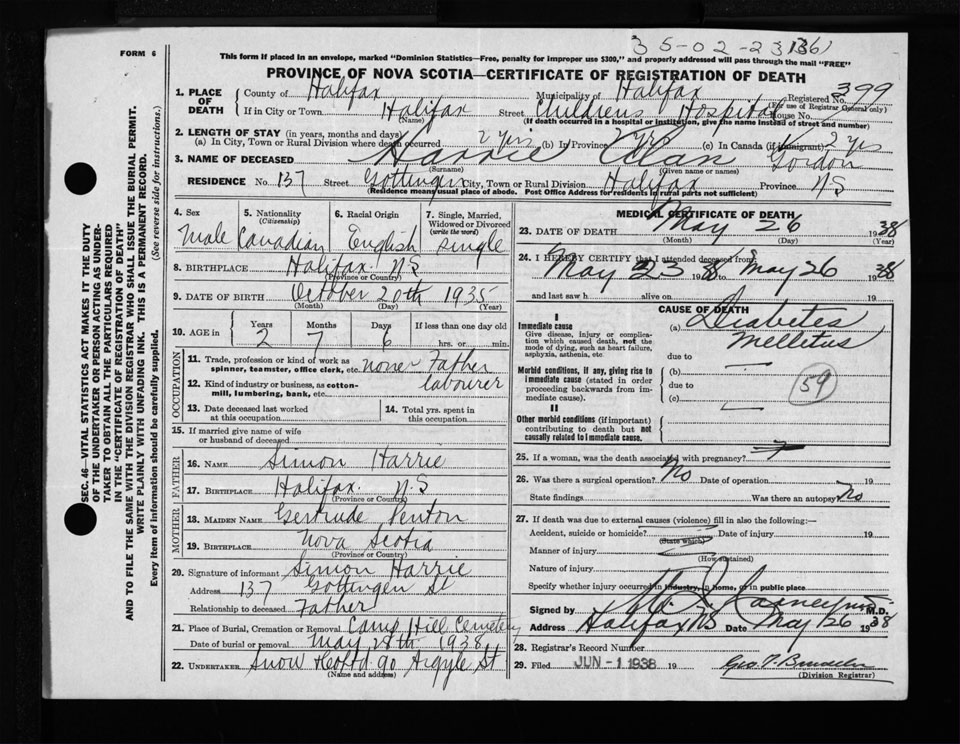 35-02-23(136)
FORM 6
This form if placed in an envelope, marked "Dominion Statistics—Free, penalty for improper use $300," and properly addressed will pass through the mail "FREE"
PROVINCE OF NOVA SCOTIA—CERTIFICATE OF REGISTRATION OF DEATH
1. PLACE OF DEATH
County of Halifax Municipality of Halifax Registered No. 399
(For use of Registrar General only)
If in City or Town Halifax Street Childrens Hospital House No.
(Name) (If death occurred in a hospital or institution, give the name instead of street and number)
2. LENGTH OF STAY (in years, months and days)
(a) In City, Town or Rural Division where death occurred 2 yrs (b) In Province 2 yrs (c) In Canada (if immigrant) 2 yrs
3. NAME OF DECEASED Harrie Alan Gordon
(Surname) (Given name or names)
RESIDENCE No. 137 Street Gottingen City, Town or Rural Division Halifax Province NS
(Residence means usual place of abode. Post Office Address for residents in rural parts not sufficient)
4. Sex 5. Nationality 6. Racial Origin 7. Single, Married,
(Citizenship) Widowed or Divorced
(write the word)
Male Canadian English single
8. BIRTHPLACE Halifax. N.S
(Province or Country)
9. DATE OF BIRTH October 20th 1935
(Month) (Day) (Year)
10. AGE in Years Months Days If less than one day old
2 7 6 hrs. or min.
OCCUPATION
11. Trade, profession or kind of work as
spinner, teamster, office clerk, etc. none Father
12. Kind of industry or business, as cotton-
mill, lumbering, bank, etc. labourer
13. Date deceased last worked
at this occupation
14. Total yrs. spent in
this occupation
15. If married give name of wife
or husband of deceased
FATHER
16. NAME Simon Harrie
17. BIRTHPLACE Halifax. N.S
(Province or Country)
MOTHER
18. MAIDEN NAME Gertrude Fenton
19. BIRTHPLACE Nova Scotia
(Province or Country)
20. Signature of informant Simon Harrie
Address 137 Gottingen St
Relationship to deceased Father
21. Place of Burial, Cremation or Removal Camp Hill Cemetery
Date of burial or removal May 28th 1938
22. UNDERTAKER Snow &Co Ltd 90 Argyle St
(Name and address)
MEDICAL CERTIFICATE OF DEATH
23. DATE OF DEATH May 26 1938
(Month) (Day) (Year)
24. I HEREBY CERTIFY that I attended deceased from:
May 23 1938 to May 26 1938
and last saw h alive on 19
CAUSE OF DEATH
I
Immediate cause
Give disease, injury or complica-
tion which caused death, not the
mode of dying, such as heart failure,
asphyxia, asthenia, etc.
(a) Diabetes
Mellitus
due to
Morbid conditions, if any, giving rise to
immediate cause (stated in order
proceeding backwards from im-
mediate cause).
(b)
due to
(c)
59
II
Other morbid conditions (if important)
contributing to death but not
causally related to immediate cause.
25. If a woman, was the death associated with pregnancy?
26. Was there a surgical operation? No Date of operation 19
State findings Was there an autopsy? No
27. If death was due to external causes (violence) fill in also the following:—
Accident, suicide or homicide? Date of injury 19
(State which)
Manner of injury
(How sustained)
Nature of injury
Specify whether injury occurred in industry, in home, or in public place
Signed by M.D.
Address Halifax NS Date May 26 1938
28. Registrar's Record Number
29. Filed JUN - 1 1938 19
(Division Registrar)
SEC. 46—VITAL STATISTICS ACT MAKES IT THE DUTY
OF THE UNDERTAKER OR PERSON ACTING AS UNDER-
TAKER TO OBTAIN ALL THE PARTICULARS REQUIRED
IN THE "CERTIFICATE OF REGISTRATION OF DEATH"
AND TO FILE THE SAME WITH THE DIVISION REGISTRAR WHO SHALL ISSUE THE BURIAL PERMIT.
WRITE PLAINLY WITH UNFADING INK. THIS IS A PERMANENT RECORD.
Every item of information should be carefully supplied. (See reverse side for instructions.)